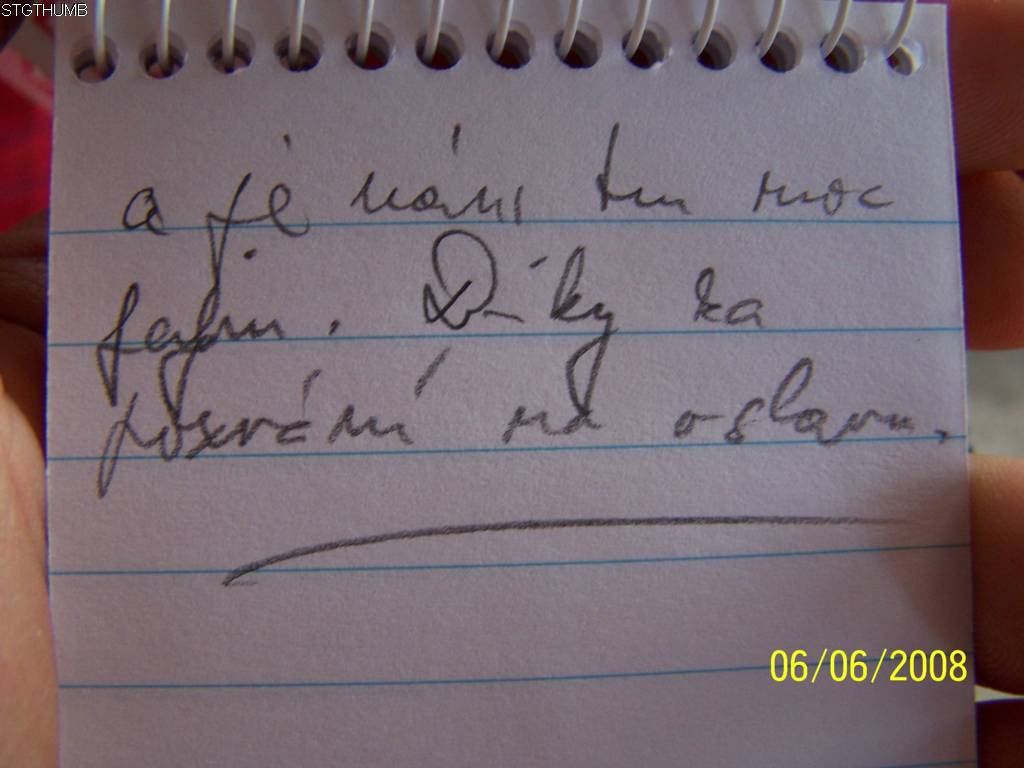 STGTHUMB
a je nám tu moc
fajn. Díky za
pozvání na oslavu.
06/06/2008